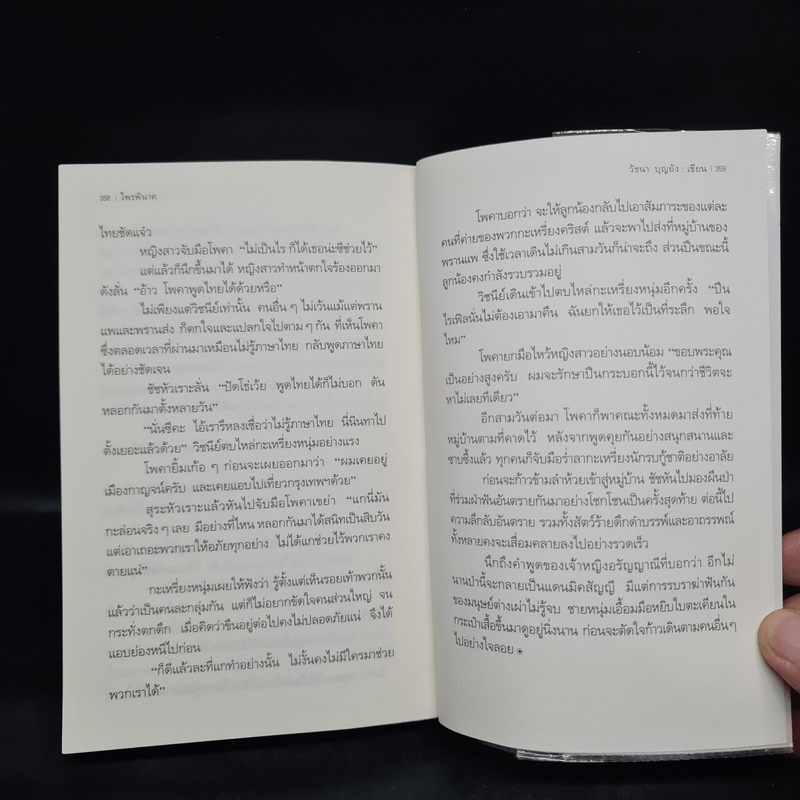 358 | ไพรพินาศ
ไทยชัดแจ๋ว
หญิงสาวจับมือโพคา “ไม่เป็นไร ก็ได้เธอน่ะซีช่วยไว้”
แต่แล้วก็นึกขึ้นมาได้ หญิงสาวทำหน้าตกใจร้องออกมา
ดังลั่น “อ้าว โพคาพูดไทยได้ด้วยหรือ”
ไม่เพียงแต่วิชนีย์เท่านั้น คนอื่น ๆ ไม่เว้นแม้แต่พราน
แพและพรานส่ง ก็ตกใจและแปลกใจไปตาม ๆ กัน ที่เห็นโพคา
ซึ่งตลอดเวลาที่ผ่านมาเหมือนไม่รู้ภาษาไทย กลับพูดภาษาไทย
ได้อย่างชัดเจน
ชัชหัวเราะลั่น “ปัดโธ่เว้ย พูดไทยได้ก็ไม่บอก ดัน
หลอกกันมาตั้งหลายวัน”
“นั่นซีคะ ไอ้เรารึหลงเชื่อว่าไม่รู้ภาษาไทย นี่นินทาไป
ตั้งเยอะแล้วด้วย” วิชนีย์ตบไหล่กะเหรี่ยงหนุ่มอย่างแรง
โพคายิ้มเก้อ ๆ ก่อนจะเผยออกมาว่า “ผมเคยอยู่
เมืองกาญจน์ครับ และเคยแอบไปเที่ยวกรุงเทพฯด้วย”
สุระหัวเราะแล้วหันไปจับมือโพคาเขย่า “แกนี่มัน
กะล่อนจริง ๆ เลย มีอย่างที่ไหน หลอกกันมาได้สนิทเป็นสิบวัน
แต่เอาเถอะพวกเราให้อภัยทุกอย่าง ไม่ได้แกช่วยไว้พวกเราคง
ตายแน่”
กะเหรี่ยงหนุ่มเผยให้ฟังว่า รู้ตั้งแต่เห็นรอยเท้าพวกนั้น
แล้วว่าเป็นคนละกลุ่มกัน แต่ก็ไม่อยากขัดใจคนส่วนใหญ่ จน
กระทั่งตกดึก เมื่อคิดว่าขืนอยู่ต่อไปคงไม่ปลอดภัยแน่ จึงได้
แอบย่องหนีไปก่อน
“ก็ดีแล้วละที่แกทำอย่างนั้น ไม่งั้นคงไม่มีใครมาช่วย
พวกเราได้”
วัชนา บุญยัง : เขียน | 359
โพคาบอกว่า จะให้ลูกน้องกลับไปเอาสัมภาระของแต่ละ
คนที่ค่ายของพวกกะเหรี่ยงคริสต์ แล้วจะพาไปส่งที่หมู่บ้านของ
พรานแพ ซึ่งใช้เวลาเดินไม่เกินสามวันก็น่าจะถึง ส่วนปืนขณะนี้
ลูกน้องคงกำลังรวบรวมอยู่
วิชนีย์เดินเข้าไปตบไหล่กะเหรี่ยงหนุ่มอีกครั้ง “ปืน
ไรเฟิลนั่นไม่ต้องเอามาคืน ฉันยกให้เธอไว้เป็นที่ระลึก พอใจ
ไหม”
โพคายกมือไหว้หญิงสาวอย่างนอบน้อม “ขอบพระคุณ
เป็นอย่างสูงครับ ผมจะรักษาปืนกระบอกนี้ไว้จนกว่าชีวิตจะ
หาไม่เลยทีเดียว”
อีกสามวันต่อมา โพคาก็พาคณะทั้งหมดมาส่งที่ท้าย
หมู่บ้านตามที่คาดไว้ หลังจากพูดคุยกันอย่างสนุกสนานและ
ซาบซึ้งแล้ว ทุกคนก็จับมือร่ำลากะเหรี่ยงนักรบกู้ชาติอย่างอาลัย
ก่อนจะก้าวข้ามลำห้วยเข้าสู่หมู่บ้าน ชัชหันไปมองผืนป่า
ที่ร่วมฝ่าฟันอันตรายกันมาอย่างโชกโชนเป็นครั้งสุดท้าย ต่อนี้ไป
ความลึกลับอันตราย รวมทั้งสัตว์ร้ายดึกดำบรรพ์และอาถรรพณ์
ทั้งหลายคงจะเสื่อมคลายลงไปอย่างรวดเร็ว
นึกถึงคำพูดของเจ้าหญิงอรัญญาณีที่บอกว่า อีกไม่
นานป่านี้จะกลายเป็นแดนมิคสัญญี มีแต่การรบราฆ่าฟันกัน
ของมนุษย์ต่างเผ่าไม่รู้จบ ชายหนุ่มเอื้อมมือหยิบใบตะเคียนใน
กระเป๋าเสื้อขึ้นมาดูอยู่นิ่งนาน ก่อนจะตัดใจก้าวเดินตามคนอื่นๆ
ไปอย่างใจลอย